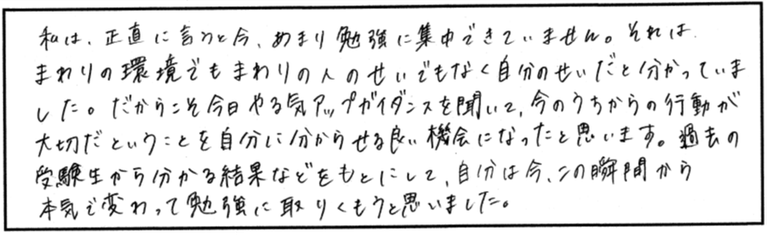 私は、正直に言うと今、あまり勉強に集中できていません。それは
まわりの環境でもまわりの人のせいでもなく自分のせいだと分かっていま
した。だからこそ今日やる気アップガイダンスを聞いて、今のうちからの行動が
大切だということを自分に分からせる良い機会になったと思います。過去の
受験生から分かる結果などをもとにして、自分は今、この瞬間から
本気で変わって勉強に取りくもうと思いました。